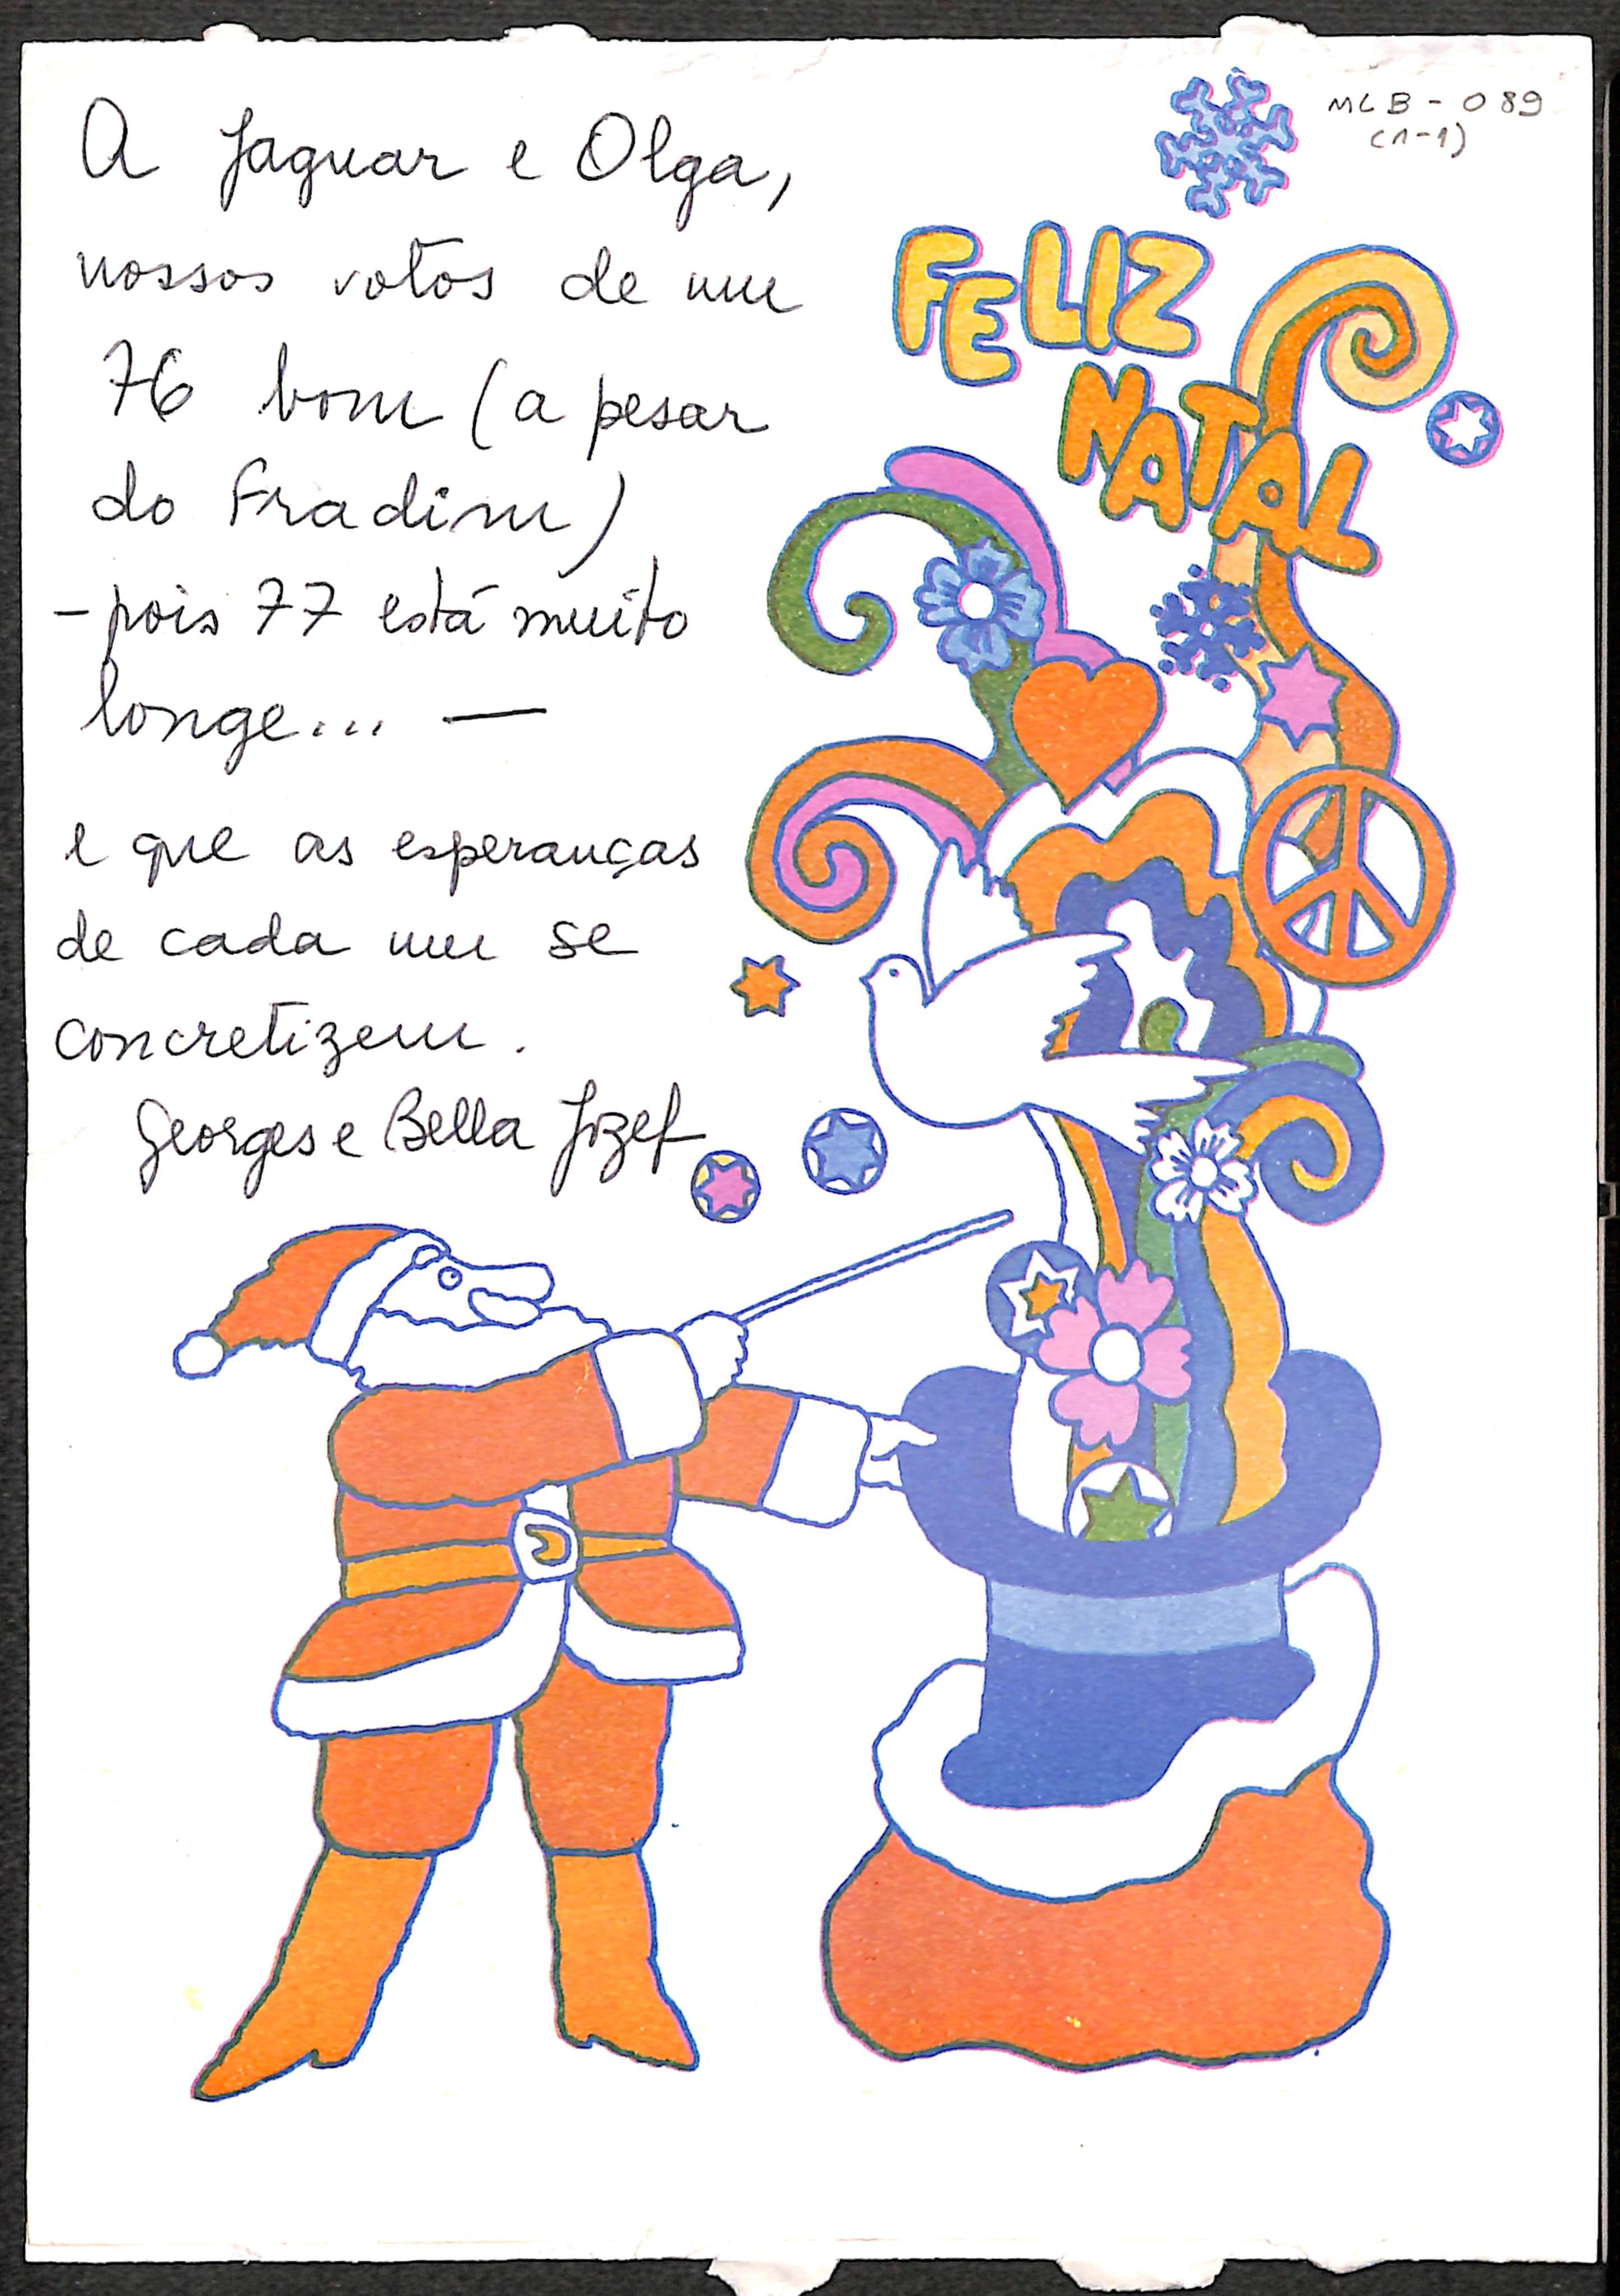 MLB - 089
(1-1)
A Jaguar e Olga,
nossos votos de um
76 bom (a pesar
do Fradim)
- pois 77 está muito
longe... —
e que as esperanças
de cada um se
concretizem.
Georges e Bella Jozef
FELIZ
NATAL